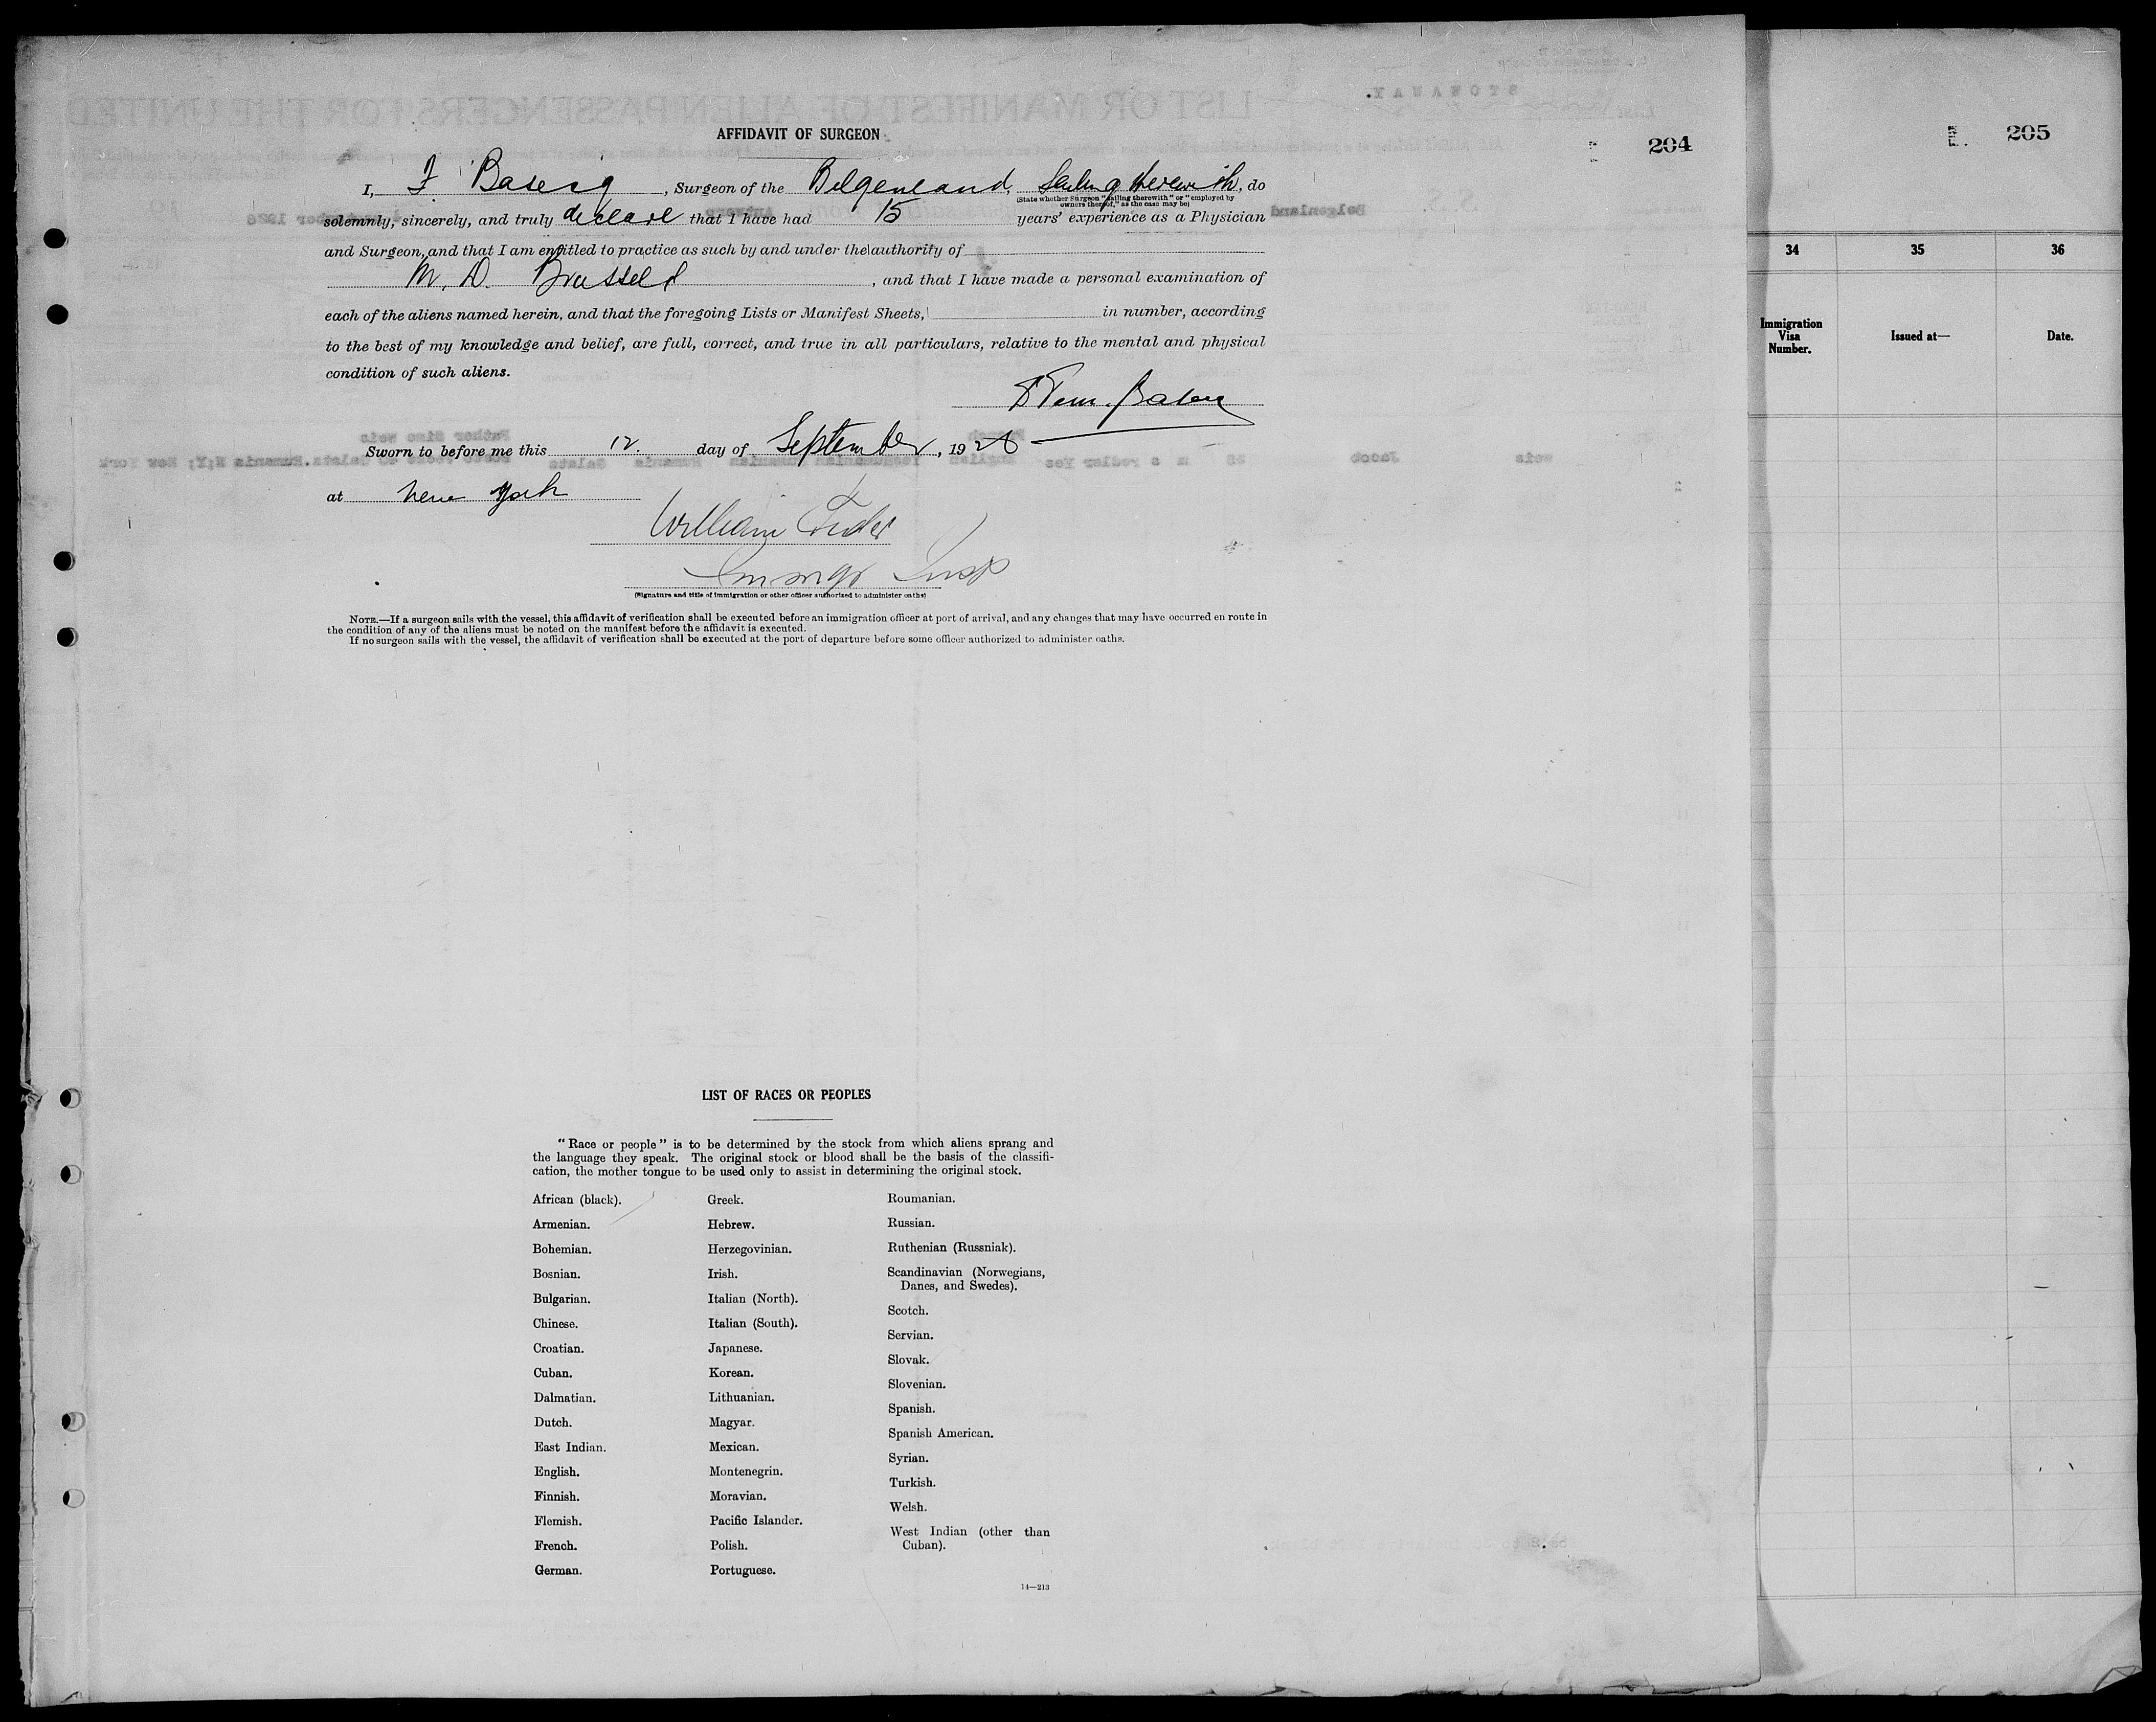 AFFIDAVIT OF SURGEON
204
205
I, F Baseig, Surgeon of the Belgenland, Sailing therewith, do
(State whether Surgeon "sailing therewith" or "employed by
owners thereof," as the case may be)
solemnly, sincerely, and truly declare that I have had 15 years' experience as a Physician
and Surgeon, and that I am entitled to practice as such by and under the authority of
M. D. Brussels, and that I have made a personal examination of
each of the aliens named herein, and that the foregoing Lists or Manifest Sheets, in number, according
to the best of my knowledge and belief, are full, correct, and true in all particulars, relative to the mental and physical
condition of such aliens.
Sworn to before me this 12. day of September, 1926
at New York
William
Immgr Insp
(Signature and title of immigration or other officer authorized to administer oaths)
NOTE.—If a surgeon sails with the vessel, this affidavit of verification shall be executed before an immigration officer at port of arrival, and any changes that may have occurred en route in
the condition of any of the aliens must be noted on the manifest before the affidavit is executed.
If no surgeon sails with the vessel, the affidavit of verification shall be executed at the port of departure before some officer authorized to administer oaths.
LIST OF RACES OR PEOPLES
"Race or people" is to be determined by the stock from which aliens sprang and
the language they speak. The original stock or blood shall be the basis of the classifi-
cation, the mother tongue to be used only to assist in determining the original stock.
African (black).
Armenian.
Bohemian.
Bosnian.
Bulgarian.
Chinese.
Croatian.
Cuban.
Dalmatian.
Dutch.
East Indian.
English.
Finnish.
Flemish.
French.
German.
Greek.
Hebrew.
Herzegovinian.
Irish.
Italian (North).
Italian (South).
Japanese.
Korean.
Lithuanian.
Magyar.
Mexican.
Montenegrin.
Moravian.
Pacific Islander.
Polish.
Portuguese.
Roumanian.
Russian.
Ruthenian (Russniak).
Scandinavian (Norwegians,
Danes, and Swedes).
Scotch.
Servian.
Slovak.
Slovenian.
Spanish.
Spanish American.
Syrian.
Turkish.
Welsh.
West Indian (other than
Cuban).
14—213
34
35
36
Immigration
Visa
Number.
Issued at—
Date.